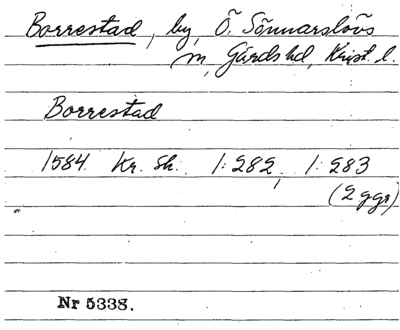 Borrestad, by, Ö. Sönnarslövs
m, Gärds hd, Krist. l.
Borrestad
1584 Kr. Sk. 1:282, 1:283
(2 ggr)
Nr 5338.